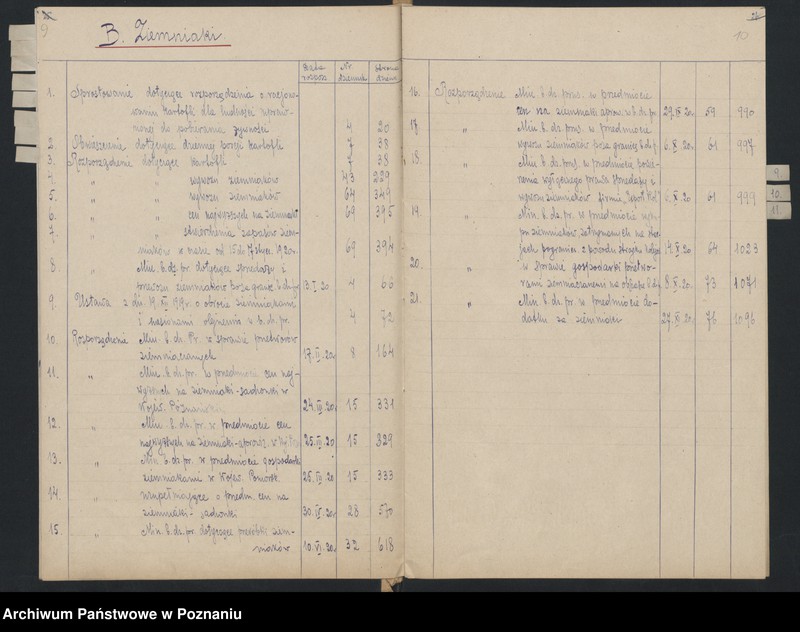 9
B. Ziemniaki.
Data rozporz. Nr dziennik Strona dzien.
1. Sprostowanie dotyczące rozporządzenia o racjono-
waniu kartofli dla ludności upraw-
nionej do pobierania żywności 4 20
2. Obwieszczenie dotyczące dziennej porcji kartofli 7 38
3. Rozporządzenie dotyczące kartofli 7 38
4. " " wywozu ziemniaków 43 229
5. " " wywozu ziemniaków 64 349
6. " " cen najwyższych na ziemniaki 69 395
7. " " stwierdzenia zapasów ziem-
niaków w czasie od 15 do 1920 r. 69 394
8. " Min. b. dz. pr. dotyczące sprzedaży i
przewozu ziemniaków poza granicę b. dz. pr. 13.I.20 4 66
9. Ustawa z dn. 19. 1919 r. o obrocie ziemniakami
i nasionami w b. dz. pr. 4 72
10. Rozporządzenie Min. b. dz. Pr. w sprawie przetworów
ziemniaczanych 17.II.20. 8 164
11. " Min. b. dz. pr. w przedmiocie cen naj-
wyższych na ziemniaki-sadzonki w
Wojew. Poznańskim 24.III.20. 15 331
12. " Min. b. dz. pr. w przedmiocie cen
najwyższych na ziemniaki 25.III.20 15 329
13. " Min. b. dz. pr. w przedmiocie gospodarki
ziemniakami w Wojew. Pomorsk. 25.III.20 15 333
14. " uzupełniające o przedm. cen na
ziemniaki-sadzonki 30.IV.20. 28 570
15. " Min. b. dz. pr. dotyczące przeróbki ziem-
niaków 10.VI.20. 32 618
10.
16. Rozporządzenie Min. b. dz. prus. w przedmiocie
cen na ziemniaki w b. dz. pr. 29.IX.20. 59 990
17. " Min. b. dz. prus. w przedmiocie
wywozu ziemniaków poza granicę b. dz. p. 6.X.20. 61 997
18. " Min. b. dz. prus. w przedmiocie
wyłącznego prawa sprzedaży i
wywozu ziemniaków firmie 6.X.20. 61 999
19. " Min. b. dz. pr. w przedmiocie
ziemniaków zatrzymanych na
pogranicz. z powodu strajku 14.X.20 64 1023
20. " w sprawie gospodarki przetwo-
rami ziemniaczanemi na obszarze b. dz. p. 8.XI.20. 73 1071
21. " Min. b. dz. pr. w przedmiocie do-
datku za ziemniaki 27.XI.20. 76 1096
9.
10.
11.
Archiwum Państwowe w Poznaniu